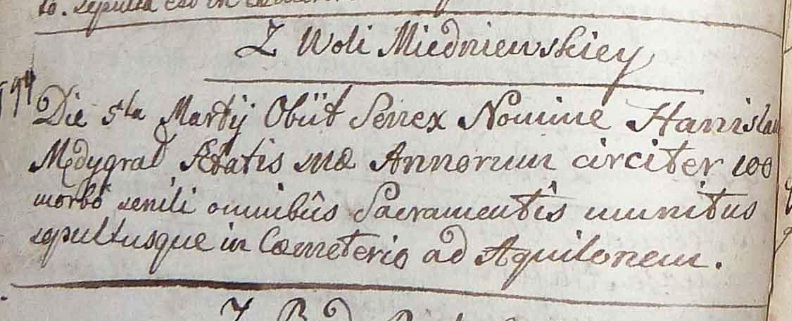 to. sepulta est in
Z Woli Miedniewskiey
Die 5ta Martij Obiit Senex Nomine Stanislau
Mędygrał Ætatis suæ Annorum circiter 100
morbô senili omnibûs Sacramentis munitus
sepultusque in Cœmeterio ad Aquilonem.
Z